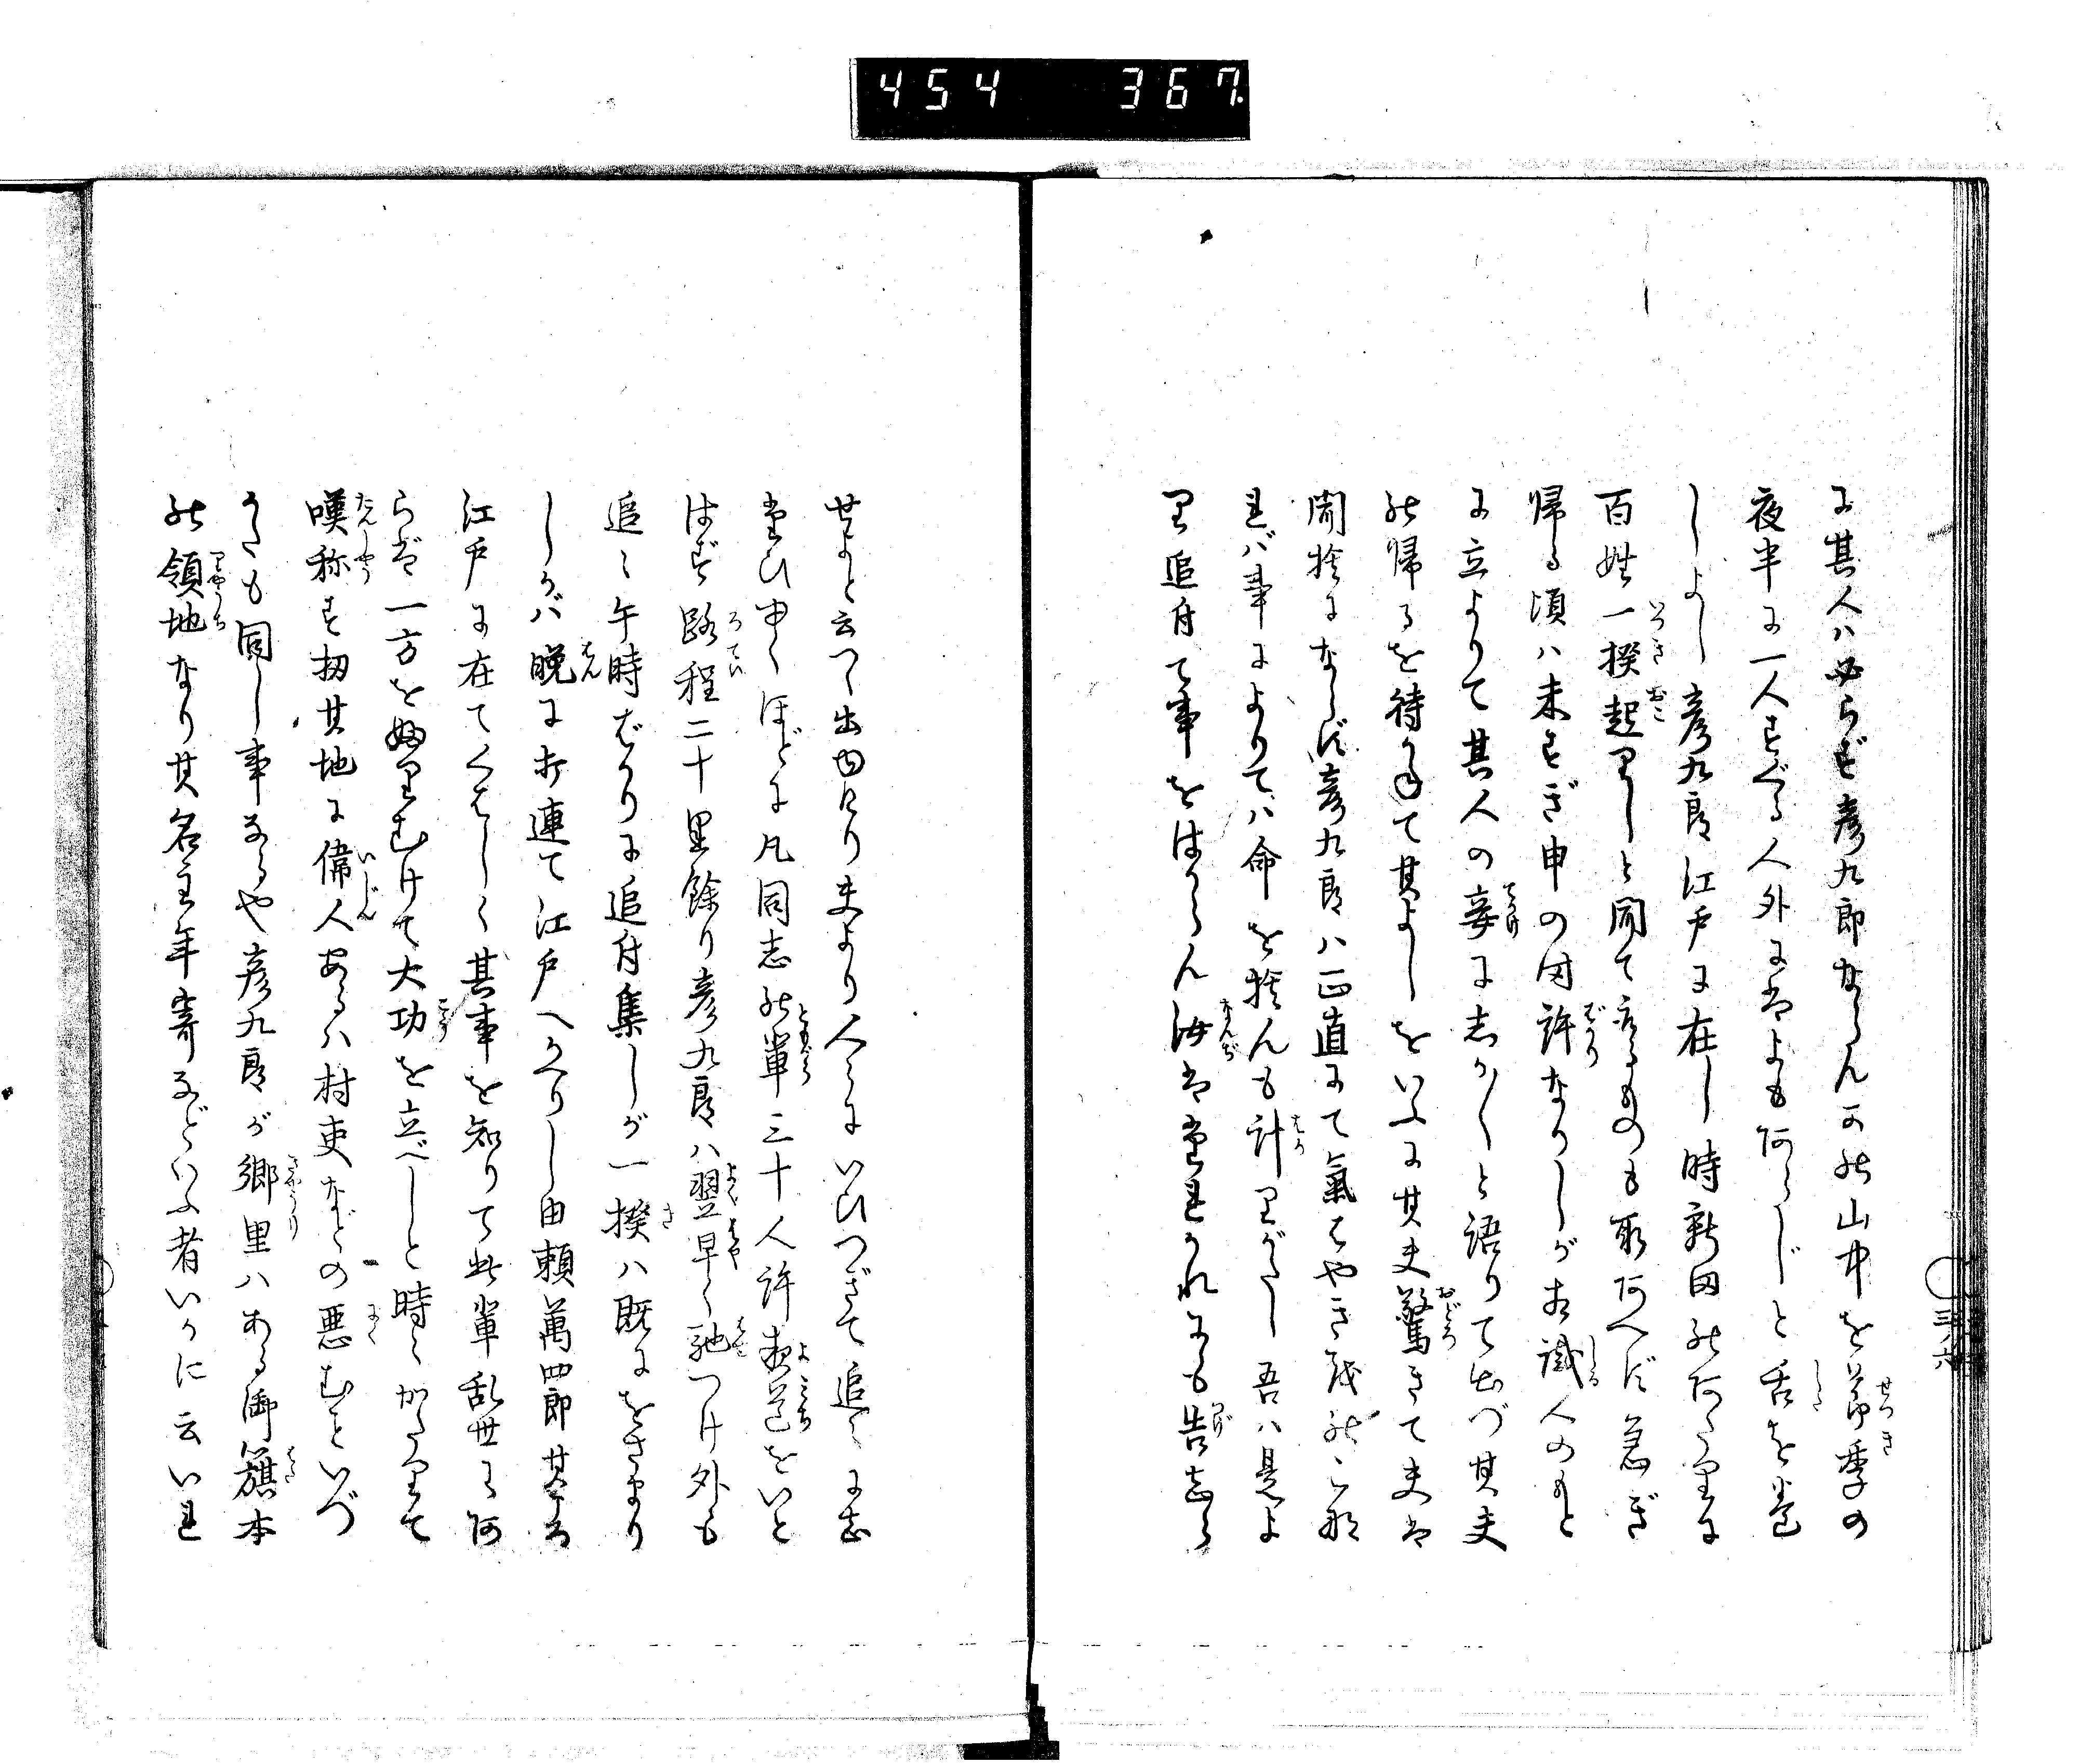 454 367
に其人ハ必らず彦九郎ならんこの山中を節季の
夜半に一人すぐる人外にはよもあらじと舌を巻
しよし彦九郎江戸に在し時新田のあたりに
百姓一揆起りしと聞て ものも取あへず急ぎ
帰る頃ハ未すぎ申の刻許なりしがお識人のもと
に立よりて其人の妾に志か〳〵と語りて出づ其夫
の帰るを待かねて其よしをいふに其夫驚きて夫は
聞捨にならず彦九郎ハ正直にて氣はやき
ればば事によりてハ命を捨んも計りがたし吾ハ是よ
り追付て事をはからん汝は 誰かれにも告志ら
せよと云つゝ出ゆけり夫より人々にいひつぎて追々に志
たひ申くほどに凡同志の輩三十人許夜道をいと
はず路程二十里餘り彦九郎ハ翌早く馳つけ外も
追々午時ばかりに追付集しが一揆ハ既にをさまり
しかバ晩に打連て江戸へかへりし由頼萬四郎其比
江戸に在てくはしく其事を知りて此輩乱世にあ
らば一方を切りむけて大功を立べしと時々かたりて
嘆称す扨其地に偉人あるハ村吏などの悪むといづ
くも同し事なるや彦九郎が郷里ハある御籏本
の領地なり其名主年寄などいふ者いかに云いれ
三ノ六